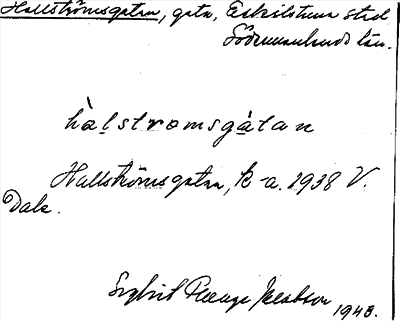 Hallströmsgatan, gata, Eskilstuna stad
Södermanlands län.
hàlstromsgàtan
Hallströmsgatan, k-a. 1938 V.
Dala.
Sigbrit Plænge Jacobson 1943.